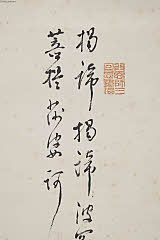 揭諦揭諦波羅
菩提薩婆訶